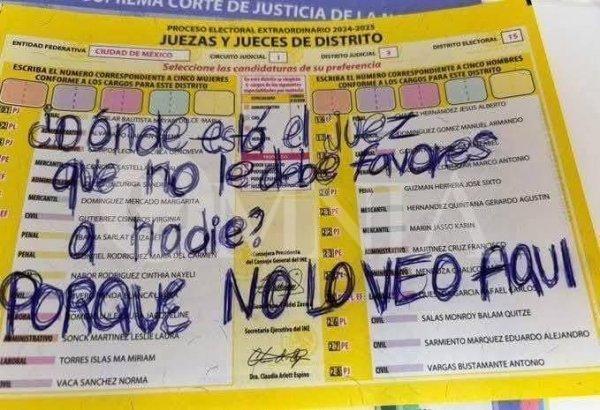 SUPREMA CORTE DE JUSTICIA DE LA N
PROCESO ELECTORAL EXTRAORDINARIO 2024-2025
JUEZAS Y JUECES DE DISTRITO
ENTIDAD FEDERATIVA CIUDAD DE MÉXICO CIRCUITO JUDICIAL 1 DISTRITO JUDICIAL 3 DISTRITO ELECTORAL 15
Seleccione las candidaturas de su preferencia
ESCRIBA EL NÚMERO CORRESPONDIENTE A CINCO MUJERES
CONFORME A LOS CARGOS PARA ESTE DISTRITO
ESCRIBA EL NÚMERO CORRESPONDIENTE A CINCO HOMBRES
CONFORME A LOS CARGOS PARA ESTE DISTRITO
¿Dónde está el juez
que no le debe favores
a nadie?
PORQUE NO LO VEO AQUI
BAUTISTA
MERCANTIL
DOMINGUEZ MERCADO MARGARITA
CIVIL
GUTIERREZ CISNEROS VIRGINIA
PENAL
IBARRA SARLAT
RODRIGUEZ MARIA DEL CARMEN
NABOR RODRIGUEZ CINTHIA NAYELI
SONCK MARTINEZ LESLIE LAURA
LABORAL
TORRES ISLAS MA MIRIAM
CIVIL
VACA SANCHEZ NORMA
Consejera Presidenta
del Consejo General del INE
Secretaria Ejecutiva del INE
Dra. Claudia Arlett Espino
HERNANDEZ JESUS ALBERTO
DOMINGUEZ GOMEZ MANUEL ARMANDO
MARCO ANTONIO
PENAL
GUZMAN HERRERA JOSE SIXTO
HERNANDEZ QUINTANA GERARDO AGUSTIN
CIVIL
MARIN JASSO KARIN
ADMINISTRATIVO
MARTINEZ CRUZ FRANCISCO
RAFAEL CARLOS
SALAS MONROY BALAM QUITZE
SARMIENTO MARQUEZ EDUARDO ALEJANDRO
CIVIL
VARGAS BUSTAMANTE ANTONIO